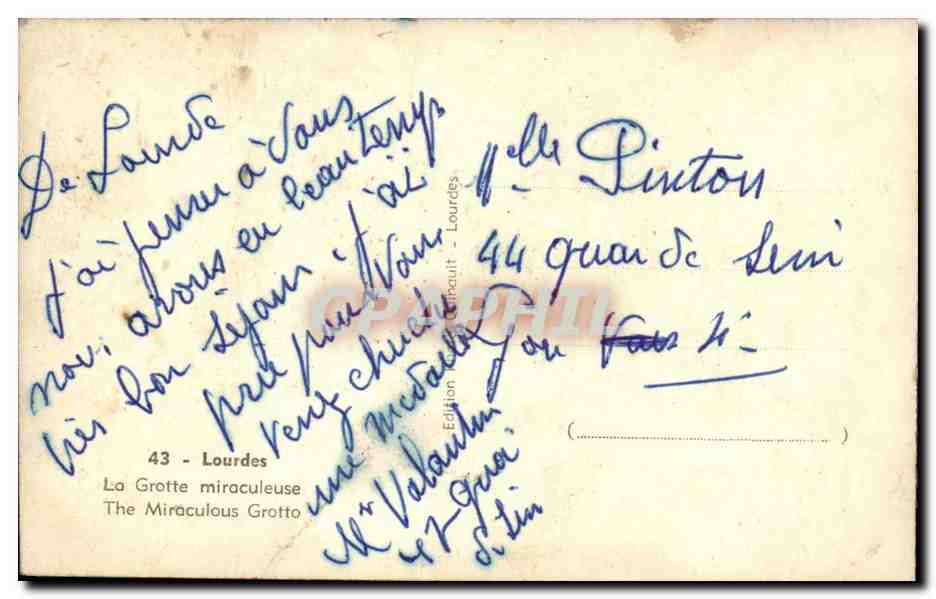 De Lourde
J'ai penser à vous
nous avons eu beau temps
très bon séjour j'ai
prié pour vous
venez chercher
une medaille
Mr Valantin
47 Quai
de Sein
Melle Pinton
44 quai de Sein
Paris 4e
43 - Lourdes
La Grotte miraculeuse
The Miraculous Grotto
Edition - Lourdes
CPAPHIL